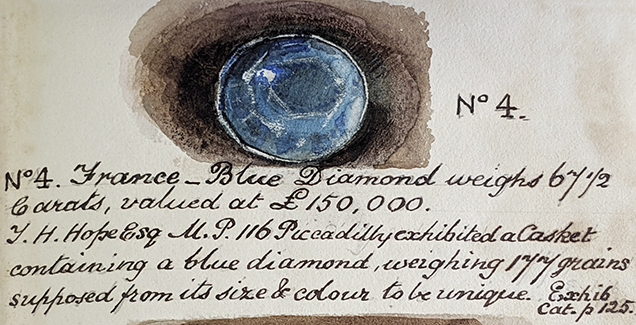 Nº 4.
Nº 4. France – Blue Diamond weighs 67 1/2
Carats, valued at £150,000.
T. H. Hope Esq M. P. 116 Piccadilly exhibited a Casket
containing a blue diamond, weighing 177 grains
supposed from its size & colour to be unique. Exhib
Cat. p 125.